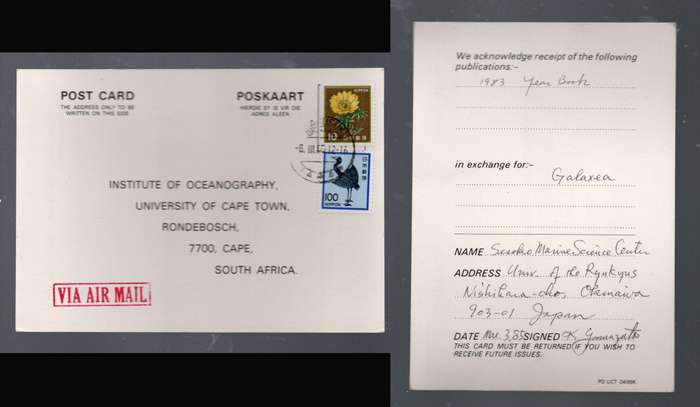 POST CARD
THE ADDRESS ONLY TO BE
WRITTEN ON THIS SIDE
POSKAART
HIERDIE SY IS VIR DIE
ADRES ALLEEN
10
NIPPON
日本郵便
-8.III.85.12-16
100
NIPPON
日本郵便
INSTITUTE OF OCEANOGRAPHY,
UNIVERSITY OF CAPE TOWN,
RONDEBOSCH,
7700, CAPE,
SOUTH AFRICA.
VIA AIR MAIL
We acknowledge receipt of the following
publications:-
1983 Year Book
in exchange for:-
Galaxea
NAME Sesoko Marine Science Center
ADDRESS Univ. of the Ryukyus
Nishihara-cho, Okinawa
903-01 Japan
DATE Mar. 3, 85 SIGNED K. Yamazato
THIS CARD MUST BE RETURNED IF YOU WISH TO
RECEIVE FUTURE ISSUES.
PD UCT 04/89K